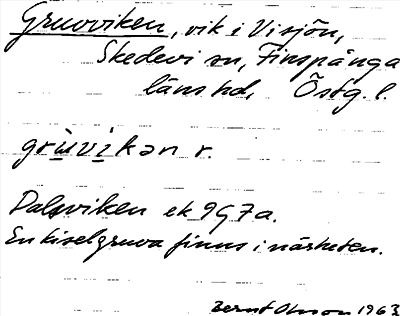 Gruvviken, vik i Visjön,
Skedevi sn, Finspånga
läns hd, Östg. l.
grùvìkən r.
Dalsviken ek 9G7a.
En kiselgruva finns i närheten.
Bernt Olsson 1963